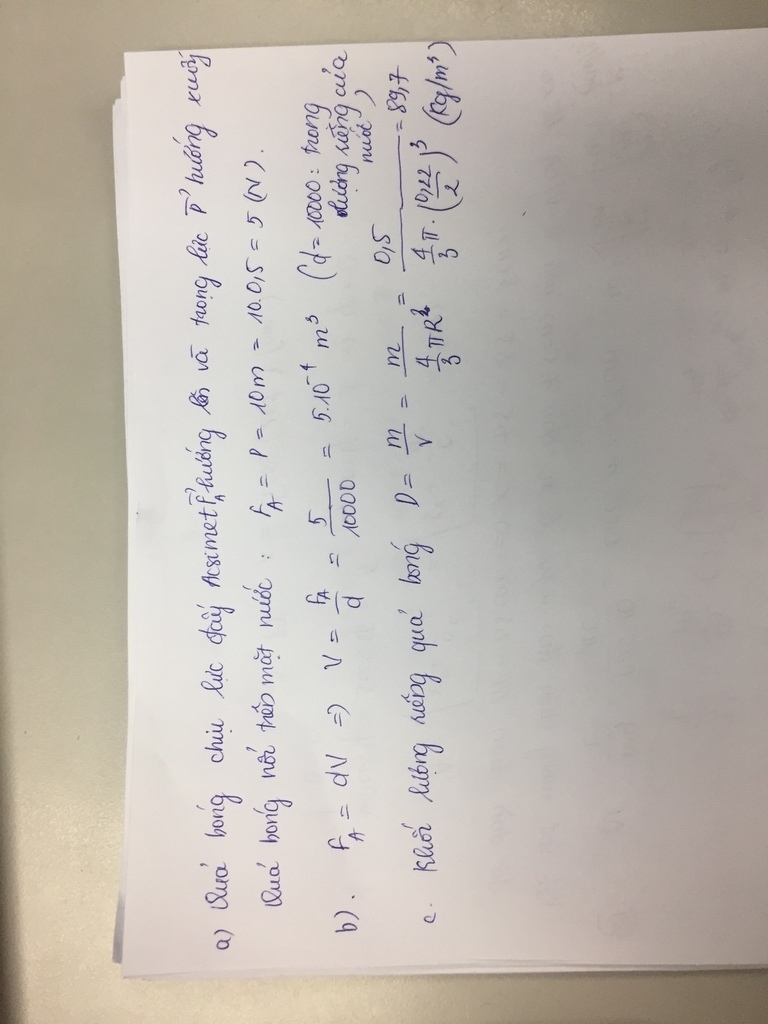 a) Quả bóng chịu lực đẩy Acsimet F_A hướng lên và trọng lực P hướng xuống
Quả bóng nổi trên mặt nước : F_A = P = 10m = 10.0,5 = 5 (N).
b). F_A = dV => V = F_A/d = 5/10000 = 5.10^-4 m^3 (d = 10000 : trọng
lượng riêng của
nước)
c. Khối lượng riêng quả bóng D = m/V = m/(4/3 πR^3) = 0,5/(4/3 π.(0,22/2)^3) = 89,7
(kg/m^3)